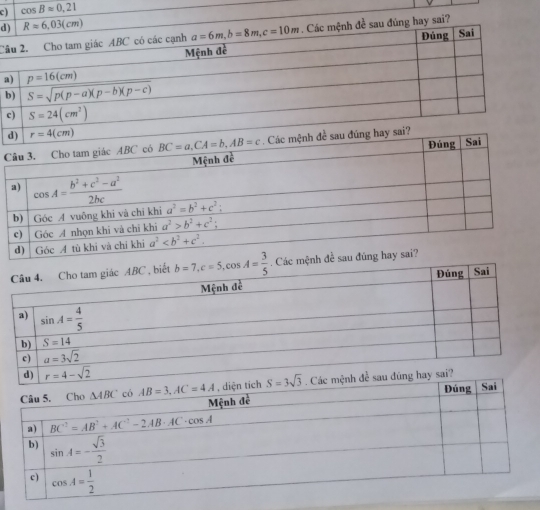 c) cos B ≈ 0,21
d) R ≈ 6,03(cm)
Câu 2. Cho tam giác ABC có các cạnh a = 6m, b = 8m, c = 10m. Các mệnh đề sau đúng hay sai?
Mệnh đề Đúng Sai
a) p = 16(cm)
b) S = √(p(p − a)(p − b)(p − c))
c) S = 24(cm²)
d) r = 4(cm)
Câu 3. Cho tam giác ABC có BC = a, CA = b, AB = c. Các mệnh đề sau đúng hay sai?
Mệnh đề Đúng Sai
a) cos A = (b² + c² − a²)/(2bc)
b) Góc A vuông khi và chỉ khi a² = b² + c²;
c) Góc A nhọn khi và chỉ khi a² > b² + c²;
d) Góc A tù khi và chỉ khi a² < b² + c².
Câu 4. Cho tam giác ABC, biết b = 7, c = 5, cos A = 3/5. Các mệnh đề sau đúng hay sai?
Mệnh đề Đúng Sai
a) sin A = 4/5
b) S = 14
c) a = 3√2
d) r = 4 − √2
Câu 5. Cho ΔABC có AB = 3, AC = 4A, diện tích S = 3√3. Các mệnh đề sau đúng hay sai?
Mệnh đề Đúng Sai
a) BC² = AB² + AC² − 2AB·AC·cos A
b) sin A = −√3/2
c) cos A = 1/2